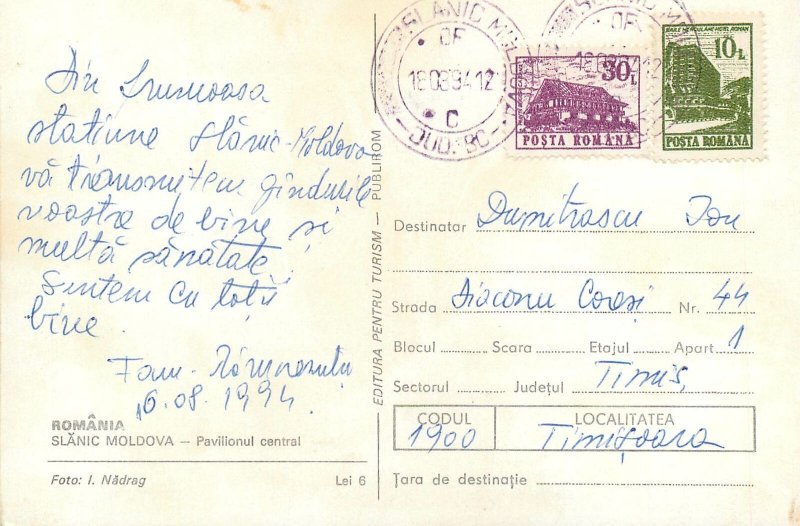 Din frumoasa
stațiune Slănic-Moldova
vă transmitem gîndurile
noastre de bine și
multă sănătate
Sîntem cu toții
bine.
Fam.
16.08.1994
ROMÂNIA
SLĂNIC MOLDOVA – Pavilionul central
Foto: I. Nădrag Lei 6
EDITURA PENTRU TURISM — PUBLIROM
SLANIC
OF
18 08 94 12
C
JUD. BC
30L
POSTA ROMÂNA
BAILE HERCULANE HOTEL ROMAN
10L
POSTA ROMÂNA
Destinatar Dumitrascu Ion
Strada Diaconu Coresi Nr. 44
Blocul Scara Etajul Apart 1
Sectorul Județul Timis,
CODUL LOCALITATEA
1900 Timișoara
Țara de destinație